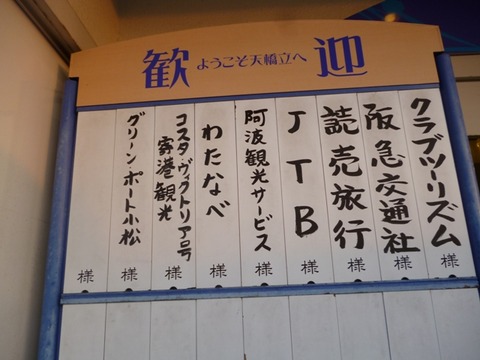 歓 ようこそ天橋立へ 迎
クラブツーリズム 様
阪急交通社 様
読売旅行 様
JTB 様
阿波観光サービス 様
わたなべ 様
コスタヴィクトリア号
寄港観光 様
グリーンポート小松 様
様